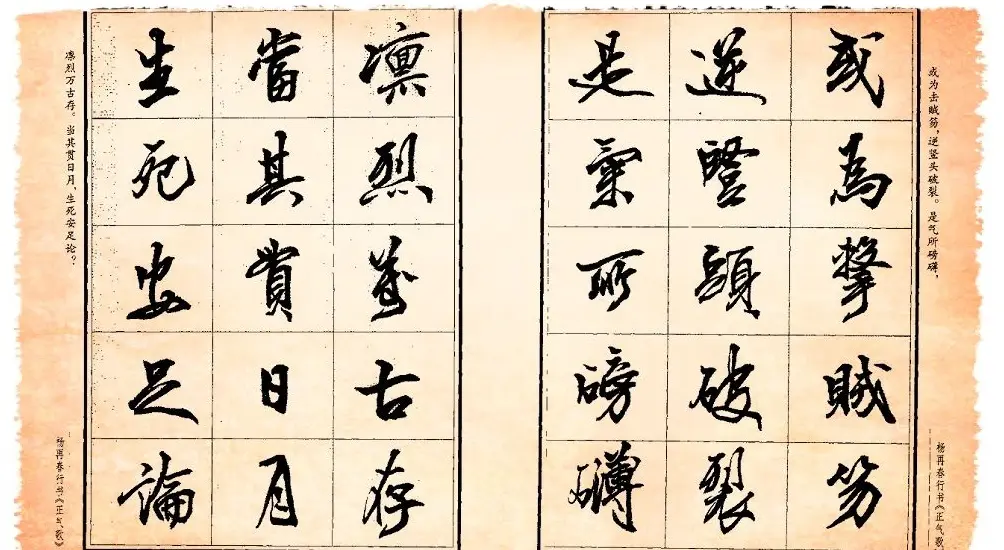 或为击贼笏，逆竖头破裂。是气所磅礴，
杨再春行书《正气歌》
或為擊賊笏
逆豎頭破裂
是氣所磅礴
凛烈萬古存
當其貫日月
生死安足論
凛烈万古存。当其贯日月，生死安足论？
杨再春行书《正气歌》